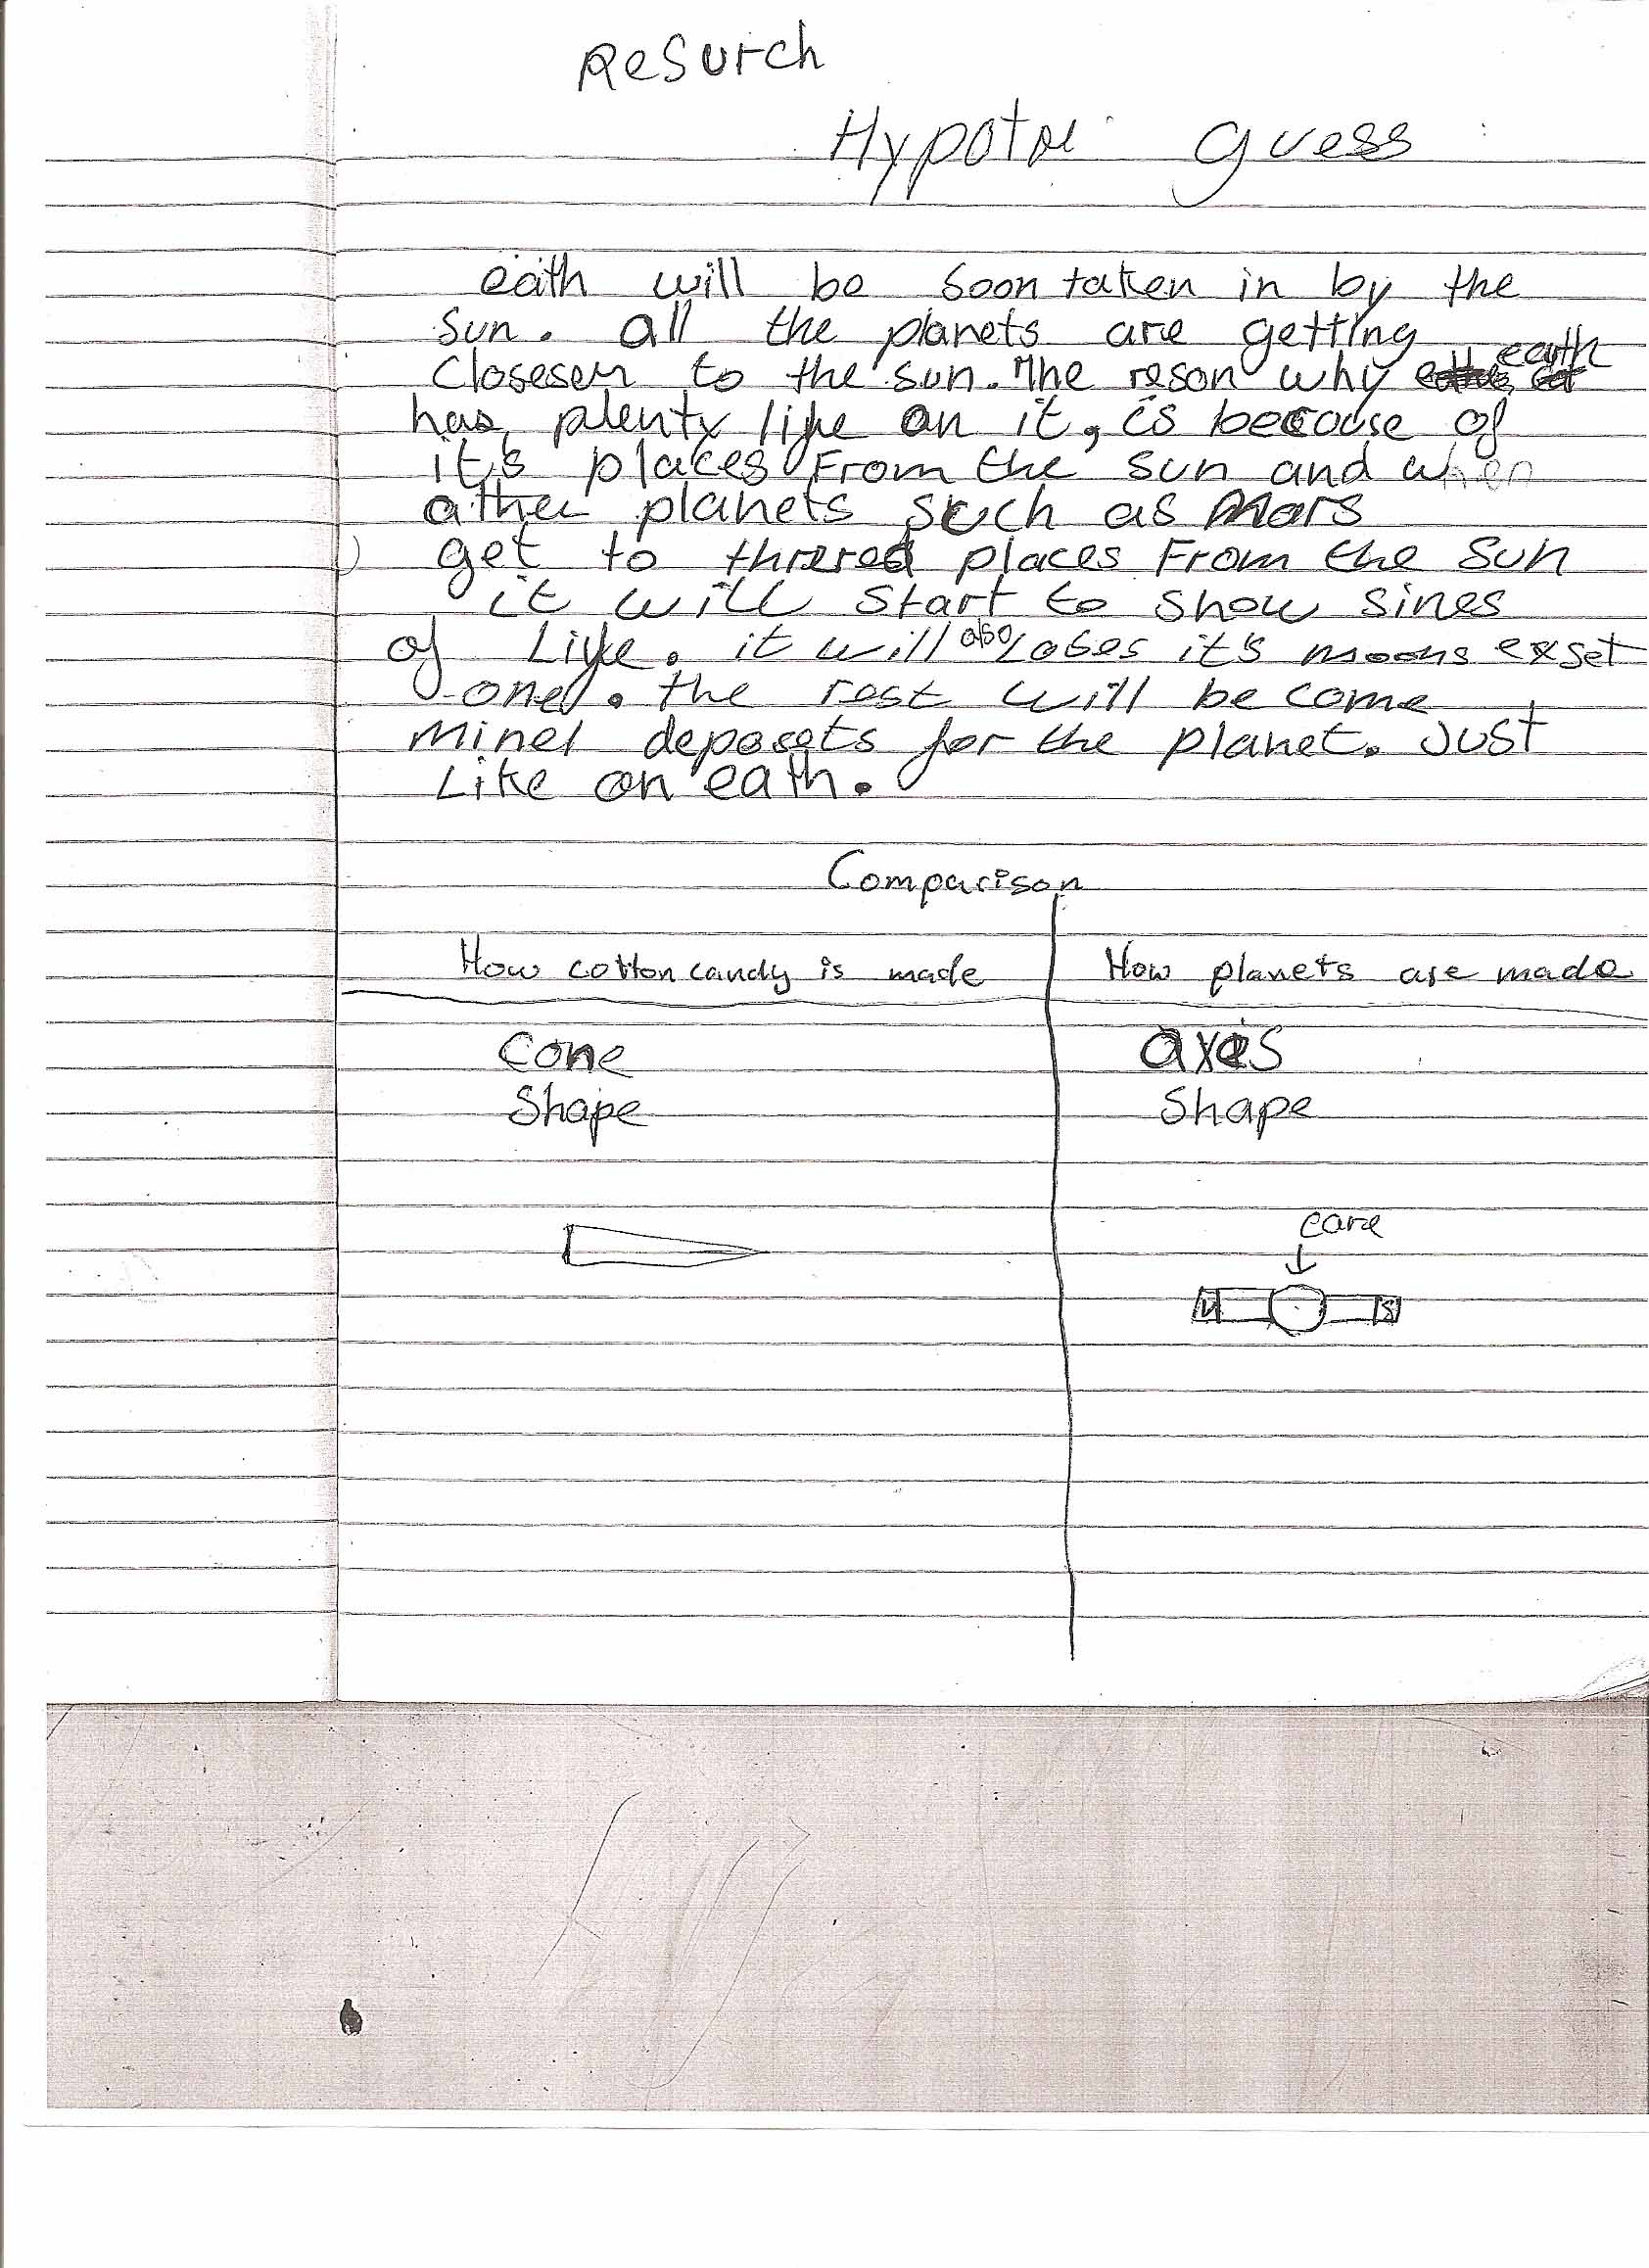 ReSurch
Hypothe guess
eath will be soon taken in by the
sun. all the planets are getting
Closeser to the sun. The reson why earth
has plenty life on it, is because of
it's places From the sun and when
other planets such as Mars
get to threred places From the Sun
it will start to show sines
of Life. it will also loses it's moons exset
one. the rest will be come
Minel deposets for the planet. Just
Like on eath.
Comparison
How cotton candy is made How planets are made
Cone axis
Shape Shape
core
N S